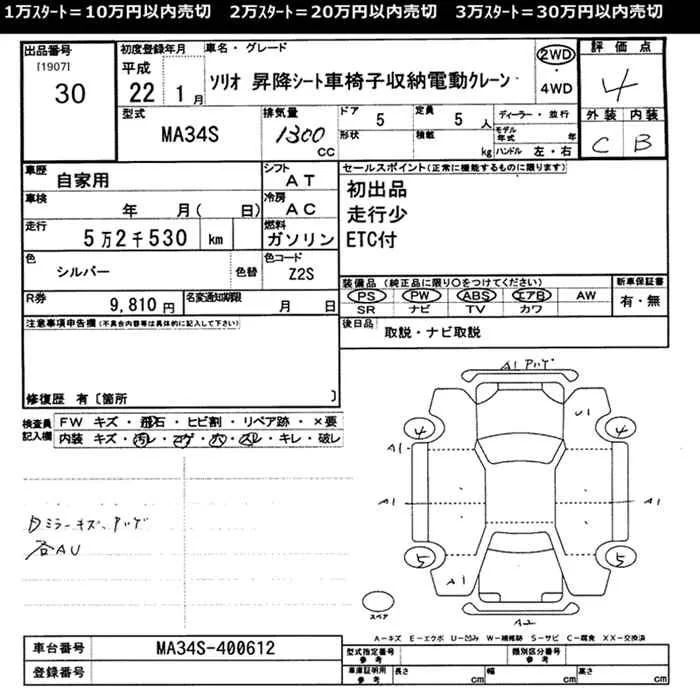 1万スタート＝10万円以内売切　2万スタート＝20万円以内売切　3万スタート＝30万円以内売切
出品番号
[1907]
30
初度登録年月
平成
22 1月
車名・グレード
ソリオ 昇降シート車椅子収納電動クレーン
2WD
・
4WD
評価点
4
外装 内装
C B
型式
MA34S
排気量
1300
CC
ドア
5
形状
定員
5人
積載
kg
ディーラー・並行
モデル年式 年
ハンドル 左・右
車歴
自家用
シフト
AT
車検
年 月( 日)
冷房
AC
走行
5万2千530 km
燃料
ガソリン
色
シルバー
色替
色コード
Z2S
R券
9,810円
名変通知期限
月 日
セールスポイント(正常に機能するものに限ります)
初出品
走行少
ETC付
装備品 (純正品に限り○をつけてください)
PS PW ABS エアB AW
SR ナビ TV カワ
新車保証書
有・無
後日品
取説・ナビ取説
注意事項申告欄(不具合内容等は具体的に記入して下さい)
修復歴 有〔箇所 〕
検査員
記入欄
FW キズ・飛石・ヒビ割・リペア跡・×要
内装 キズ・汚レ・コゲ・穴・スレ・キレ・破レ
各AU
A1 アハゲ
U1
4 4
A1 A1
A1 A1
5 5
A1
A2
スペア
A－キズ E－エクボ U－凹み W－補修跡 S－サビ C－腐食 XX－交換済
車台番号
MA34S-400612
登録番号
型式指定番号
参考
類別区分番号
参考
車庫証明用
参考
長さ cm
幅 cm
高さ cm